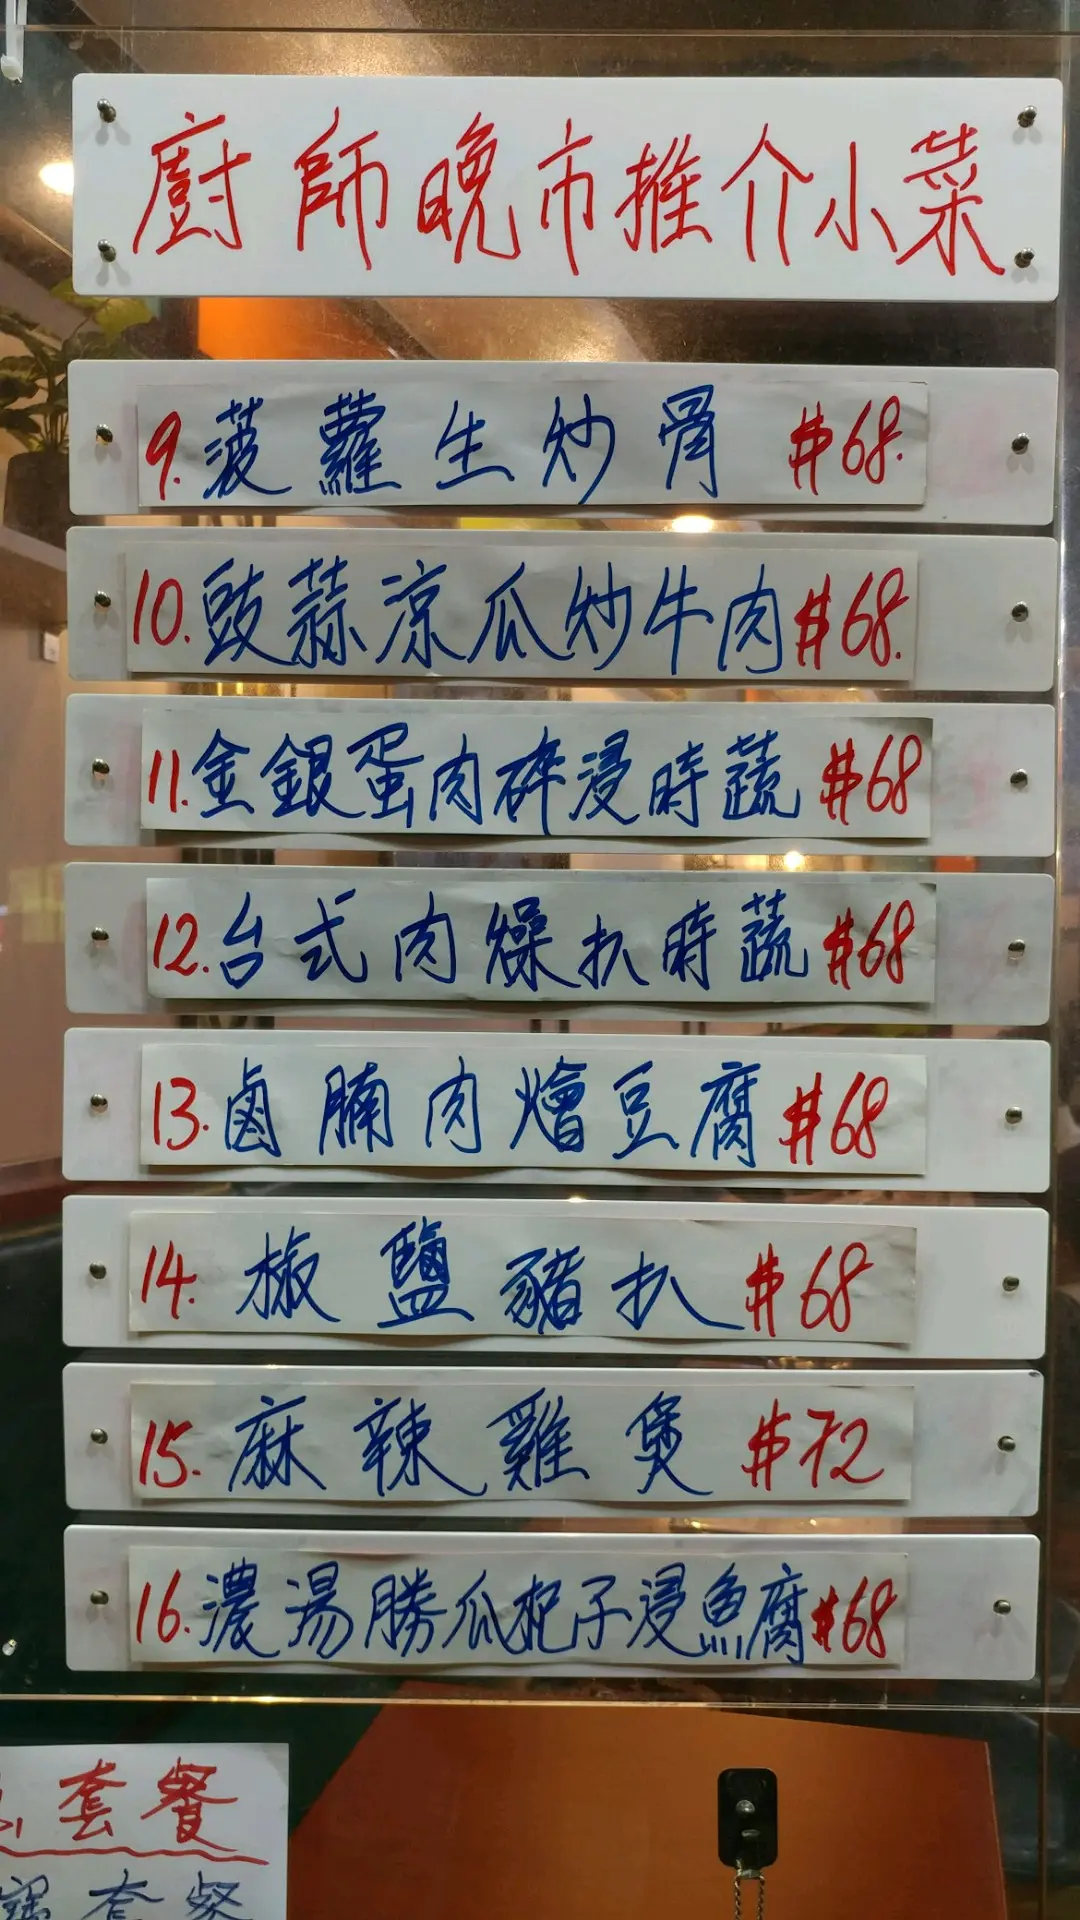 廚師晚市推介小菜
9.菠蘿生炒骨 $68.
10.豉蒜凉瓜炒牛肉 $68.
11.金銀蛋肉碎浸時蔬 $68
12.台式肉燥扒時蔬 $68
13.鹵腩肉燴豆腐 $68
14.椒鹽豬扒 $68
15.麻辣雞煲 $72
16.濃湯勝瓜杞子浸魚腐 $68
套餐
套餐